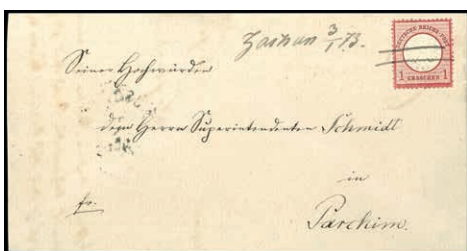 Zachun 3/1 73.
DEUTSCHE REICHS-POST
1 GROSCHEN 1
Seiner Hochwürden
dem Herrn Superintendenten Schmidt
in
fr.
Parchim.